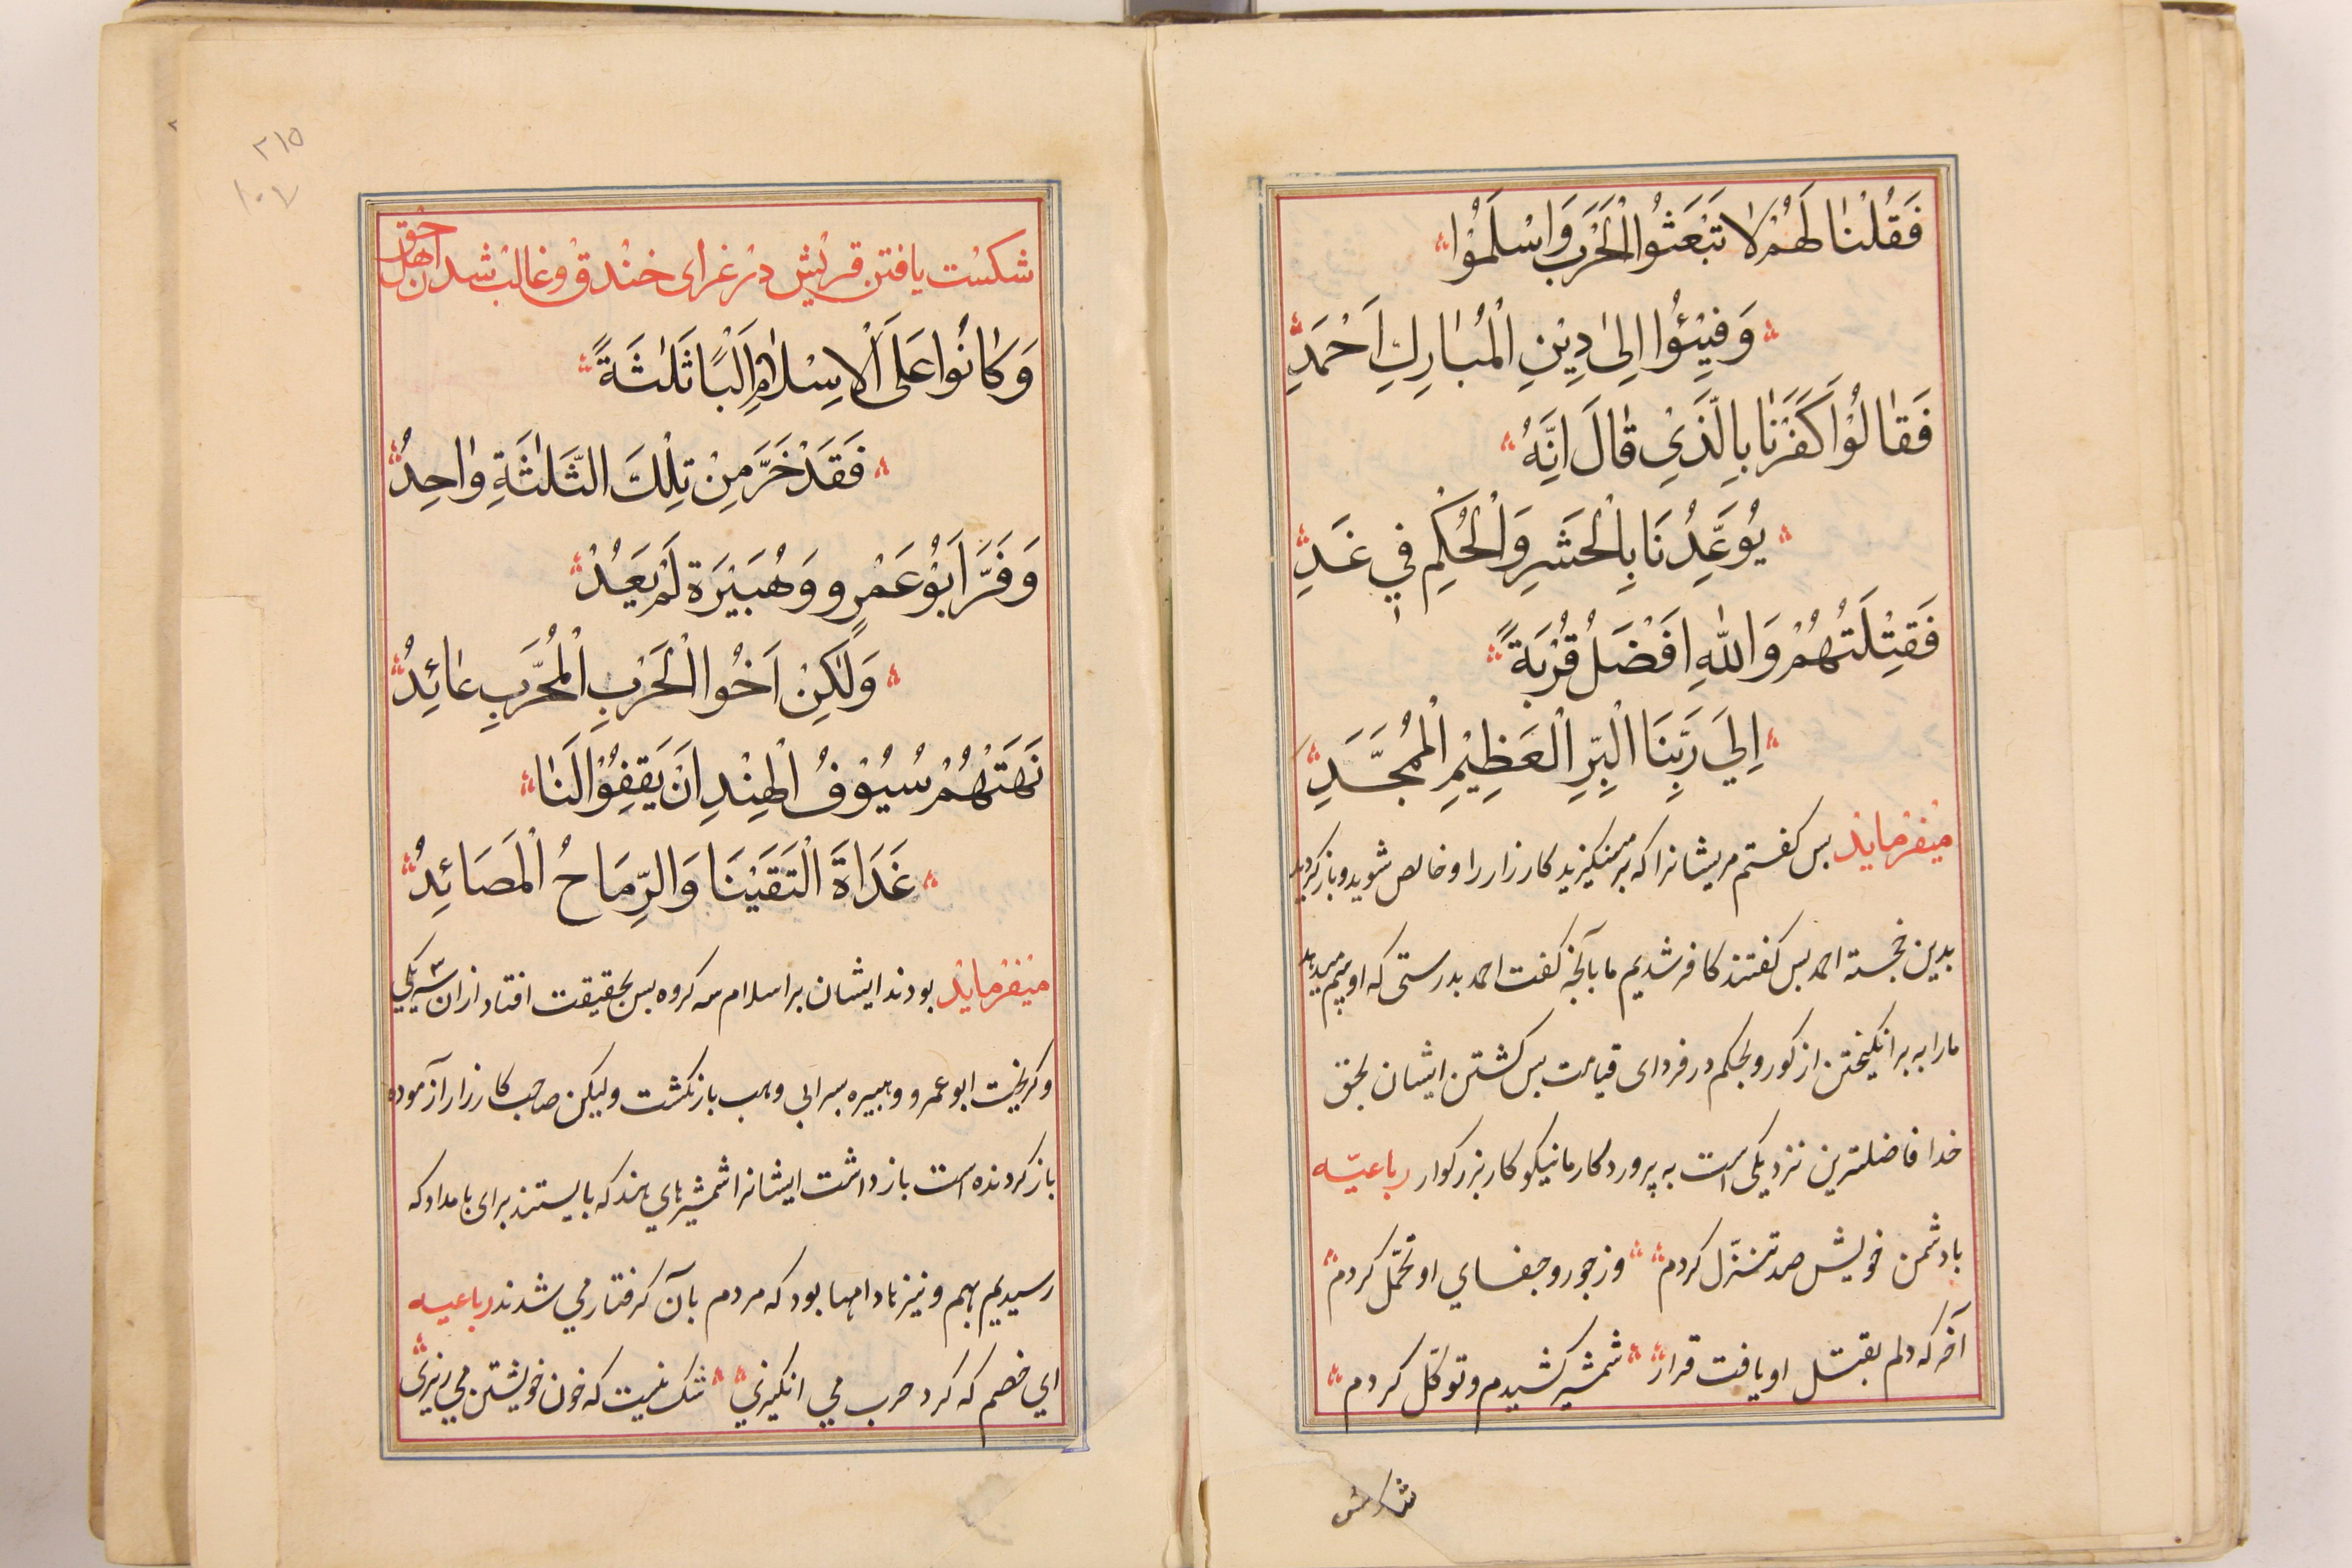 فَقُلْنَا لَهُمْ لَا تَبْعَثُوا الْحَرْبَ وَاسْلَمُوا
وَفِيْئُوا اِلٰى دِيْنِ الْمُبَارِكِ اَحْمَدِ
فَقَالُوْا كَفَرْنَا بِالَّذِيْ قَالَ اِنَّهُ
يُوَعِّدُنَا بِالْحَشَرِ وَالْحُكْمِ فِي غَدِ
فَقِتْلَتُهُمْ وَاللّٰهِ اَفْضَلُ قُرْبَةً
اِلَي رَبِّنَا الْبِرِّ الْعَظِيْمِ الْمُمَجَّدِ
میفرماید بس کفتم مریشانرا که برمینکیزید کارزار را و خالص شوید و بازکردید
بدین خجسته احمد بس کفتند کافر شدیم ما بآنچه کفت احمد بدرستی که او بیم میدهد
مارا به برانکیختن از کور و بحکم در فردای قیامت بس کشتن ایشان بحق
خدا فاضلترین نزدیکی است به پروردکار ما نیکوکار بزرکوار رباعیّه
با دشمن خویش صد تنزّل کردم وز جور و جفاي او تحمّل کردم
آخر که دلم بقتل او یافت قرار شمشیر کشیدم و توکّل کردم
شکست
٢١٥
١٠٧
شکست یافتن قریش در غزای خندق و غالب شدن اهل حق
وَكَانُوا عَلَى الْاِسْلَامِ اِلْبًا ثَلٰثَةً
فَقَدْ خَرَّ مِنْ تِلْكَ الثَّلٰثَةِ وٰاحِدُ
وَفَرَّ اَبُوْ عَمْرٍو وَهُبَيْرَة لَمْ يَعُدْ
وَلٰكِنْ اَخُوا الْحَرْبِ الْمُجَرَّبِ عٰائِدُ
نَهَتْهُمْ سُيُوْفُ الْهِنْدِ اَنْ يَقِفُوْا لَنَا
غَدَاةَ الْتَقَيْنَا وَالرِّمَاحُ الْمَصَائِدُ
میفرماید بودند ایشان بر اسلام سه کروه بس بحقیقت افتاد ازان سه یکی
و کریخت ابو عمرو و هبیره بسر ابی وهب بازنکشت و لیکن صاحب کارزار آزموده
بازکردنده است بازداشت ایشانرا شمشیرهاي هند که بایستند برای ما بامداد که
رسیدیم بهم و نیزها دامها بود که مردم بآن کرفتار مي شدند رباعیه
اي خصم که کرد حرب مي انکیزي شک نیست که خون خویشتن مي ریزی